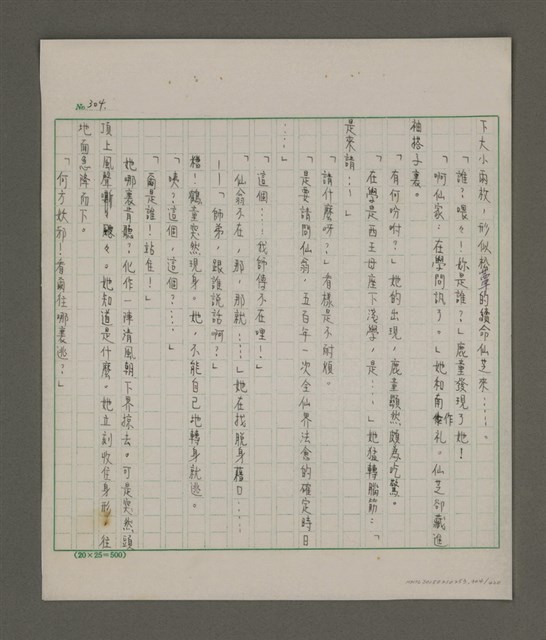 No. 304.
下大小兩枚，形似松蕈的續命仙芝來……。
「誰？喂々！妳是誰？」鹿童發現了她！
「啊仙家：在學問訊了。」她和南作礼。仙芝卻藏進
袖搭子裏。
「有何吩咐？」她的出現，鹿童顯然頗感吃驚。
「在學是西王母座下淺學，是……」她猛轉腦筋：「
是來請……」
「請什麼呀？」看樣是不耐煩。
「是要請問仙翁，五百年一次全仙界法會的確定時日
……」
「這個……我師傅不在哩！」
「仙翁不在，那，那就……」她在找脫身藉口……
——「師弟，跟誰說話啊？」
糟！鶴童突然現身。她，不能自己地轉身就逃。
「咦？這個，這個？……」
「爾是誰！站住！」
她哪裏肯聽？化作一陣清風朝下界掠去。可是突然頭
頂上風聲颼々。她知道是什麼。她立刻收住身形，往
地面急降而下。
「何方妖邪！看爾往哪裏逃？」
(20×25=500)